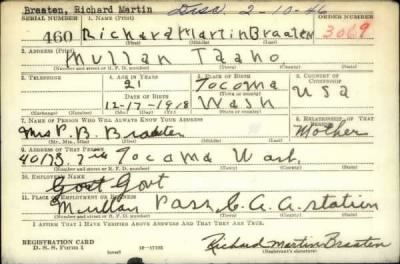 Braaten, Richard Martin Disc. 2-10-46
SERIAL NUMBER 1. NAME (Print) ORDER NUMBER
460 Richard Martin Braaten 3069
(First) (Middle) (Last)
2. ADDRESS (Print)
Mullan Idaho
(Number and street or R. F. D. number) (Town) (County) (State)
3. TELEPHONE 4. AGE IN YEARS 5. PLACE OF BIRTH 6. COUNTRY OF CITIZENSHIP
21 Tocoma
DATE OF BIRTH
12-17-1918 Wash USA
7. NAME OF PERSON WHO WILL ALWAYS KNOW YOUR ADDRESS 8. RELATIONSHIP OF THAT PERSON
Mrs P. B. Braaten Mother
(Mr., Mrs., Miss) (First) (Middle) (Last)
9. ADDRESS OF THAT PERSON
Tocoma Wash.
(Number and street or R. F. D. number) (Town) (County) (State)
10. EMPLOYER'S NAME
Govt Govt
11. PLACE OF EMPLOYMENT OR BUSINESS
Mullan Pass C. A. A. station
(Number and street or R. F. D. number) (Town) (County) (State)
I AFFIRM THAT I HAVE VERIFIED ABOVE ANSWERS AND THAT THEY ARE TRUE.
REGISTRATION CARD
D. S. S. Form 1 (over) Richard Martin Braaten
(Registrant's signature)